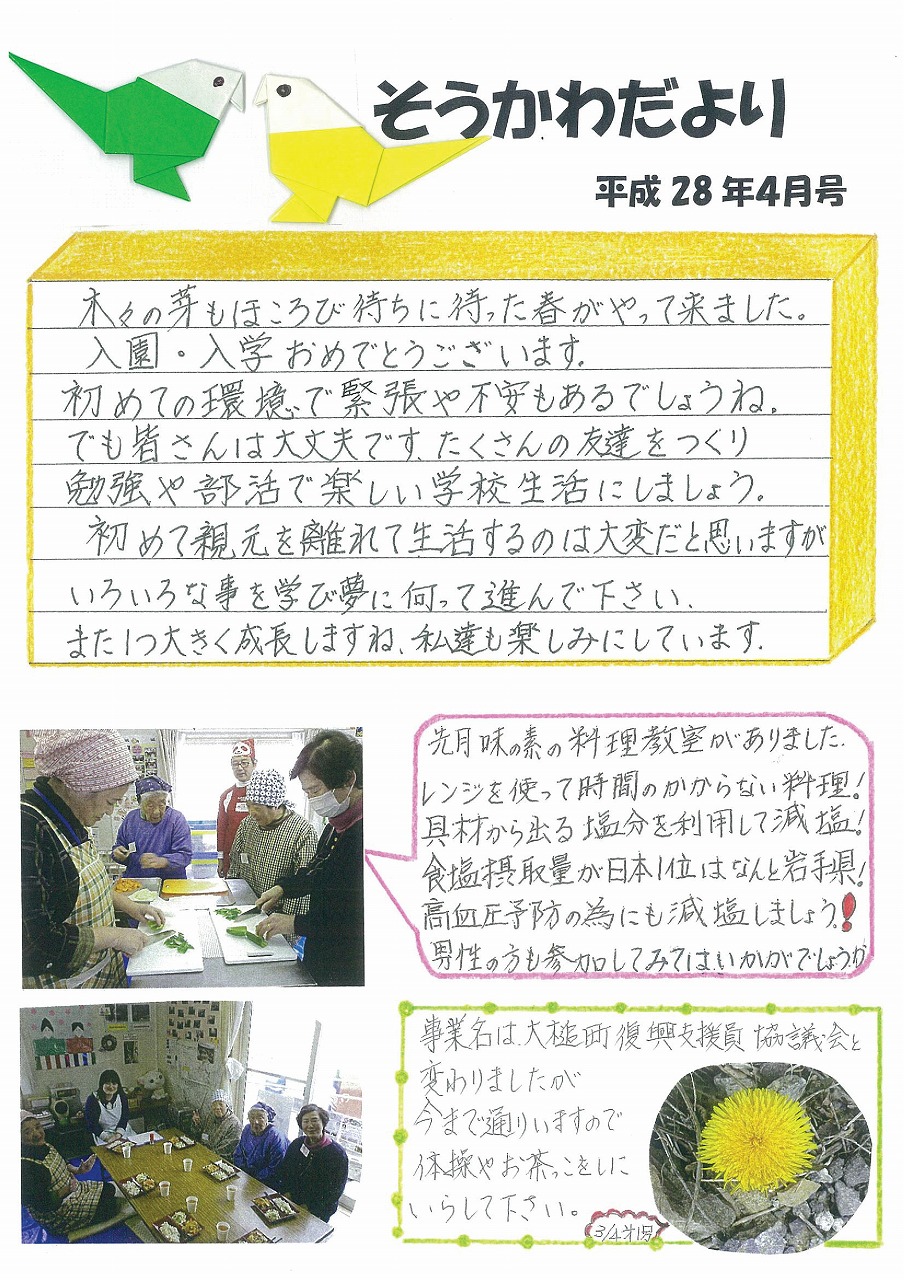 そうかわだより
平成28年4月号
木々の芽もほころび待ちに待った春がやって来ました。
入園・入学おめでとうございます。
初めての環境で緊張や不安もあるでしょうね。
でも皆さんは大丈夫です、たくさんの友達をつくり
勉強や部活で楽しい学校生活にしましょう。
初めて親元を離れて生活するのは大変だと思いますが
いろいろな事を学び夢に向って進んで下さい、
また1つ大きく成長しますね、私達も楽しみにしています。
先月味の素の料理教室がありました、
レンジを使って時間のかからない料理！
具材から出る塩分を利用して減塩！
食塩摂取量が日本1位はなんと岩手県！
高血圧予防の為にも減塩しましょう。！
男性の方も参加してみてはいかがでしょうか
事業名は大槌町復興支援員協議会と
変わりましたが
今まで通りいますので
体操やお茶っこをしに
いらして下さい。
3/4 才1号